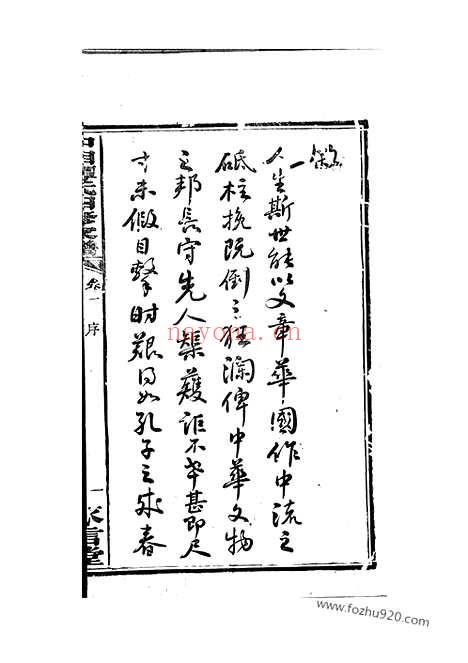 人生斯世能以文章華國作中流之
砥柱挽既倒之狂瀾俾中華文物
之邦長守先人榘矱誰不幸甚即尺
寸未假目擊時艱得如孔子之球春
卷一 序
一
nayona.cn
www.fozhu920.com